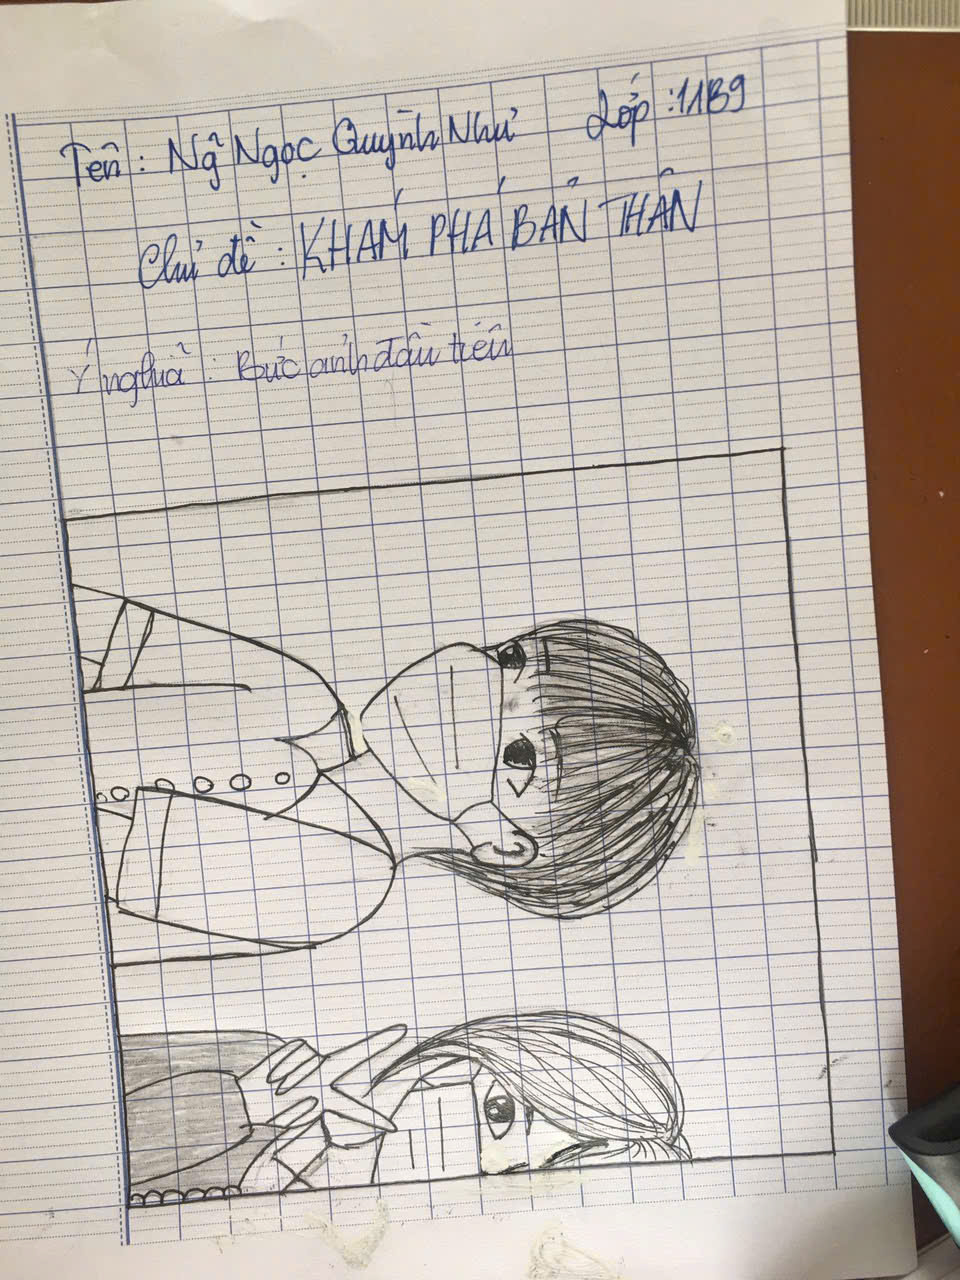 Tên : Ngô Ngọc Quỳnh Như Lớp : 11B9
Chủ đề : KHÁM PHÁ BẢN THÂN
Ý nghĩa : Bức ảnh đầu tiên